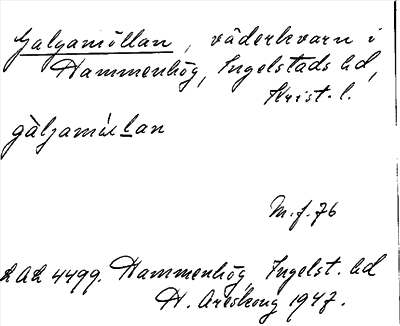 Galgamöllan, väderkvarn i
Hammenhög, Ingelstads hd,
Krist. l.
gàljamúllan
M.f. 76
LAL 4499. Hammenhög, Ingelst. hd
H. Areskoug 1947.